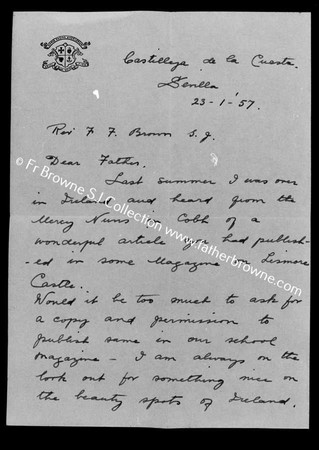 Castilleja de la Cuesta.
Sevilla
23-1-'57.
Rev F. F. Brown S.J.
Dear Father.
Last summer I was over
in Ireland and heard from the
Mercy Nuns in Cobh of a
wonderful article you had publish-
-ed in some Magazine on Lismore
Castle.
Would it be too much to ask for
a copy and permission to
publish same in our school
magazine - I am always on the
look out for something nice on
the beauty spots of Ireland.
© Fr Browne S.J. Collection www.fatherbrowne.com